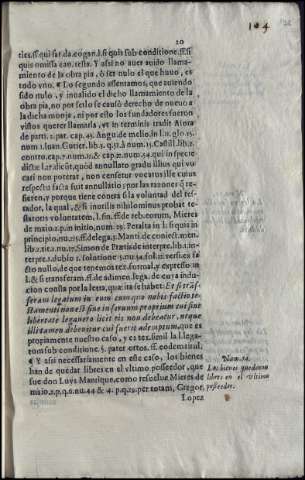 104
20
ties.ff.qui satisda.cogan.l.si quis sub conditione.ff.si
quis omissa cau.testa. Y assi no auer auido llama-
miento de la obra pia, ò ser nulo el que huuo, es
todo vno. ¶ Lo segundo assentamos, que auiendo
sido nulo, y inualido el dicho llamamiento de la
obra pia, no por esso se causò derecho de nueuo a
la dicha monja, ni por esto los fundadores fueron
vistos querer llamarla, vt in terminis tradit Azor
de parti. 2. par. cap. 45. Angu. de melio. in l.1. glo.15.
num.1. Ioan. Gutier. lib.2. q. 51. à num.13. Castil. lib.2.
contro. cap. 7. num. 21. & cap. 22. num.54. qui in specie
dicit, quòd annullato gradu illius qui vo-
cari non poterat, non censetur vocatus ille cuius
respectu facta fuit annullatio; por las razones q̃ re-
fieren, y porque tiene contra si la voluntad del tes-
tador, la qual, & si inutilis nihilominus probat te-
statoris voluntatem, l. fin. ff. de reb. eorum, Mieres
de maio. 2. p. in initio, num. 29. Peralta in l. si quis in
principio, nu. ff. de lega. 3. Manti. de coniect. men.
lib. 2. tit. nu. 17. Simon de Prætis de interpre. lib.2. in-
terpre. 1. dubio 1. solutione 5. nu. 34. fol. vers. ex fa-
cto nullo, de que tenemos tex. formal, y expresso in
l. & si transferam. ff. de adimen. lega. de cuya indu-
cion consta por la letra, que ita se habet: Et si trãs-
feram legatum in eum cum quo nobis factio te-
stamenti non est siue in seruum proprium cui sine
libertate legauero licet eis non debeatur, neque
illi tamen debebitur cui fuerit ademptum, que es
propiamente nuestro caso, y es tex. simil. l. legа-
tum sub conditione. §. pater ortos. ff. eodem titul.
¶ Y assi necessariamente en este caso, los bienes
han de quedar libres en el vltimo posseedor, que
fue don Luys Manrique, como resuelue Mieres de
maio. 1. p. q. 1. nu. 44. & 4. p. q. 19. per totam, Gregor.
Lopez
Num. 14.
Los bienes quedaron
libres en el vltimo
posseedor.